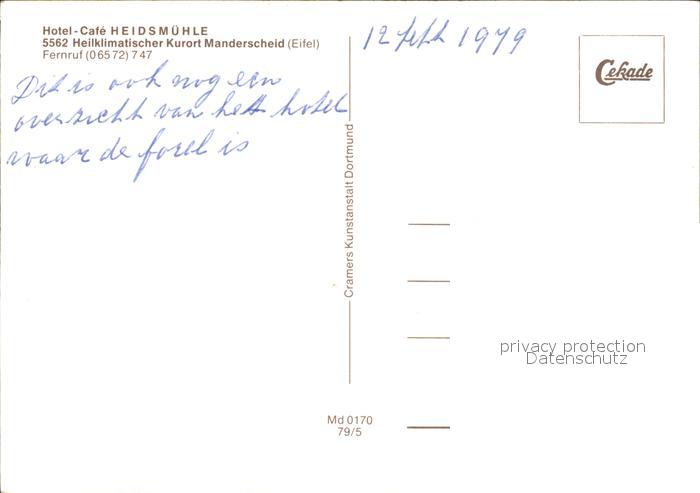 Hotel-Café HEIDSMÜHLE
5562 Heilklimatischer Kurort Manderscheid (Eifel)
Fernruf (06572) 747
Dit is ook nog een
overzicht van het hotel
waar de forel is
12 sept 1979
Cekade
Cramers Kunstanstalt Dortmund
privacy protection
Datenschutz
Md 0170
79/5